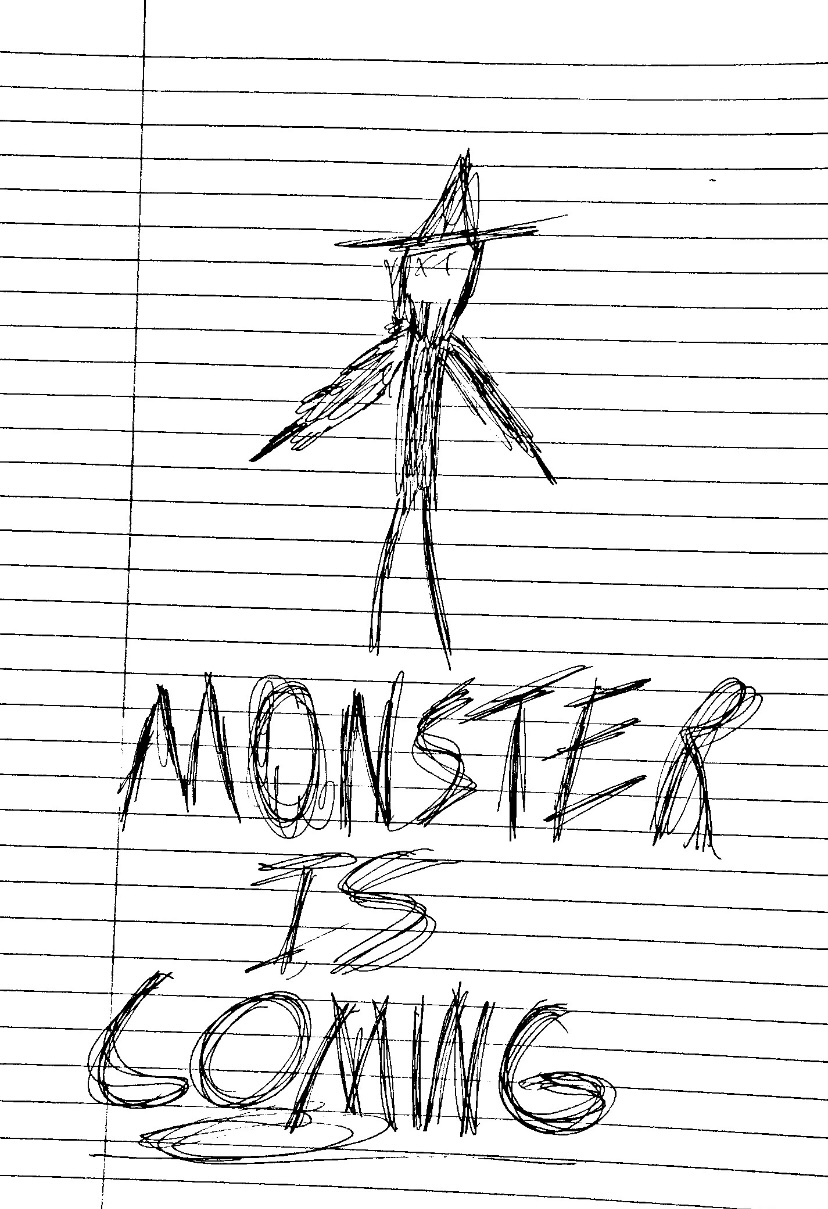 MONSTER
IS
COMING